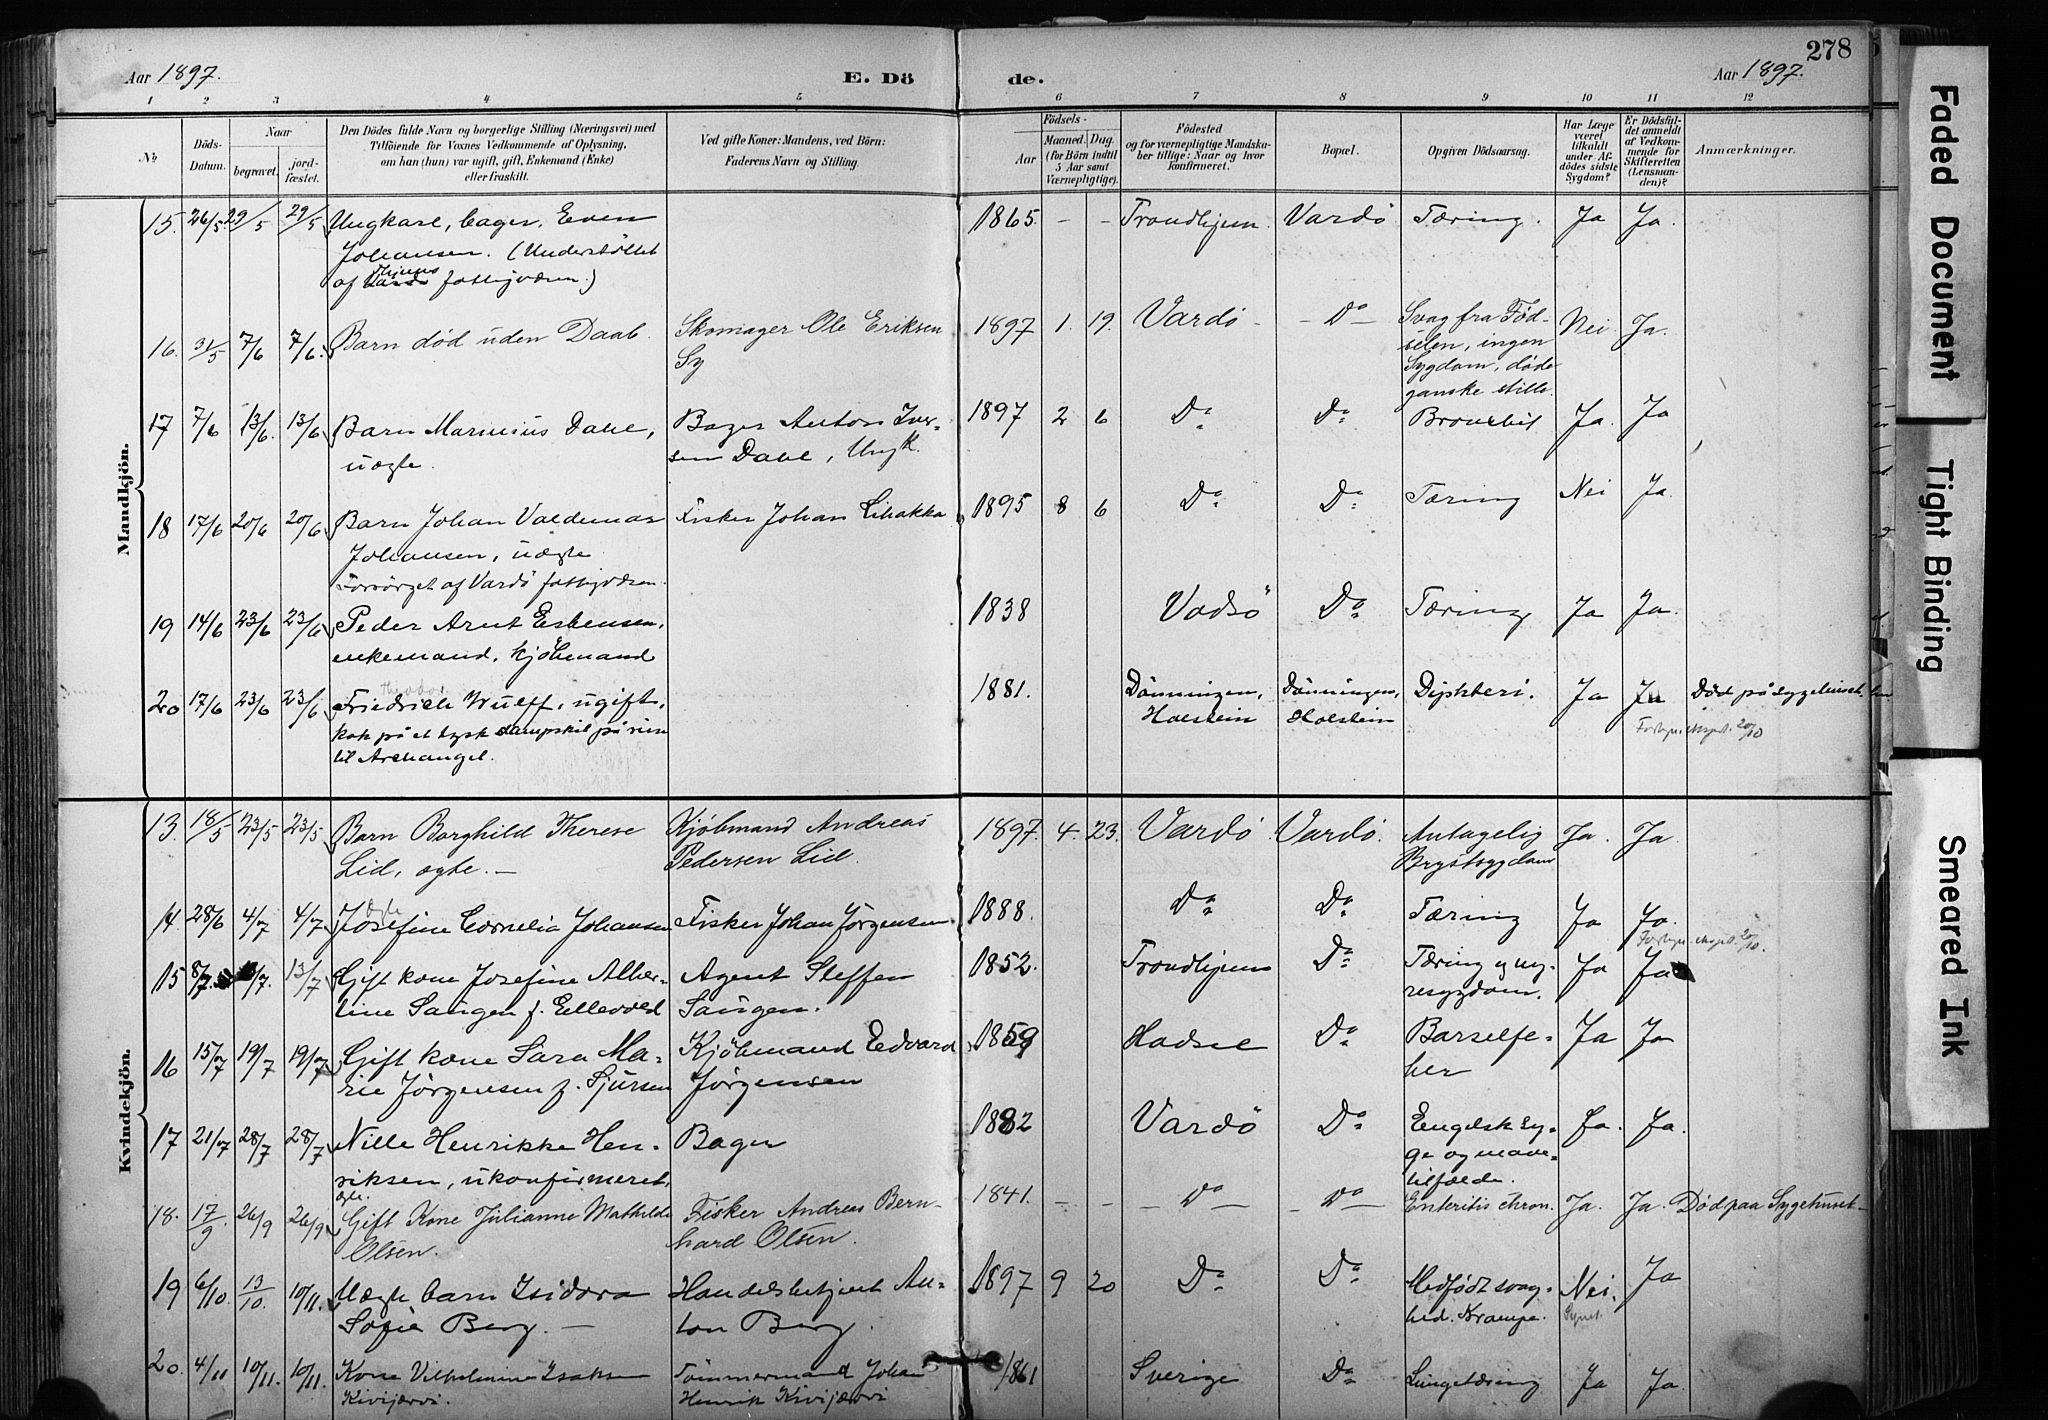 278
Aar 1897. E. Dö de. Aar 1897.
1 2 3 4 5 6 7 8 9 10 11 12
№ Döds-Datum. Naar begravet. jordfæstet.
Den Dödes fulde Navn og borgerlige Stilling (Næringsvei) med
Tilföiende for Voxnes Vedkommende af Oplysning,
om han (hun) var ugift, gift, Enkemand (Enke)
eller fraskilt.
Ved gifte Koner: Mandens, ved Börn:
Faderens Navn og Stilling.
Födsels-
Aar Maaned. Dag.
(for Börn indtil
5 Aar samt
Værnepligtige).
Födested
og for værnepligtige Mandska-
ber tillige: Naar og hvor
konfirmeret.
Bopæl.
Opgiven Dödsaarsag.
Har Læge
været
tilkaldt
under Af-
dödes sidste
Sygdom?
Er Dödsfal-
det anmeldt
af Vedkom-
mende for
Skifteretten
(Lensman-
den)?
Anmærkninger.
Mandkjön.
15. 26/5. 29/5 29/5 Ungkarl, bager, Even 1865. - - Trondhjem. Vardö Tæring. Ja Ja.
Johansen. (Understöttet
af Thjems fattigvæsen.)
16. 31/5 7/6 7/6. Barn död uden Daab. Skomager Ole Eriksen 1897 1. 19. Vardö - - Do - Svag fra Föd- Nei Ja.
Sy selen, ingen
Sygdom, döde
ganske stille.
17 7/6 13/6. 13/6 Barn Marinius Dahl, Bager Anton Iver- 1897 2 6 Do Do Bronchit Ja. Ja
uægte. sen Dahl, Ungk.
18 17/6 20/6 20/6 Barn Johan Valdemar Fisker Johan Lihakka 1895 8 6 Do Do Tæring Nei Ja
Johansen, uægte
Forsörget af Vardö fattigvæsen.
19 14/6 23/6 23/6 Peder Arnt Esbensen, 1838 Vadsö Do Tæring Ja Ja.
enkemand, kjöbmand
20 17/6 23/6 23/6 Friedrich Theodor Wulff, ugift, 1881. Dönningen, Dönningen, Diphteri. Ja Ja Död på sygehuset
kok på et tysk dampskib på reise Holstein Holstein 20/10
til Archangel.
Kvindekjön.
13. 18/5 23/5 23/5 Barn Borghild Therese Kjöbmand Andreas 1897. 4. 23. Vardö Vardö. Antagelig Ja. Ja.
Lid, ægte. - Pedersen Lid. Brystsygdom
14 28/6 4/7 4/7 Josefine Cornelia Johansen Fisker Johan Jörgensen 1888. Do Do Tæring Ja Ja.
20/10.
15 8/7. 13/7. 13/7 Gift kone Josefine Alber- Agent Steffen 1852. Trondhjem Do Tæring og ny- Ja Ja
tine Saugen f. Ellevold Saugen. resygdom.
16 15/7 19/7 19/7 Gift kone Sara Ma- Kjöbmand Edvard 1859 Hadsel Do Barselfe- Ja Ja
rie Jörgensen f. Sjursen Jörgensen ber
17 21/7 28/7 28/7 Nille Henrikke Hen- Bager 1882 Vardö Do Engelsk Sy- Ja. Ja.
riksen, ukonfirmeret, ge og mave-
ægte. tilfælde.
18. 17/9. 26/9 26/9 Gift Kone Julianne Mathilde Fisker Andreas Bern- 1841. - - - Do - - Do - Enteritis chron. Ja. Ja. Död paa Sygehuset.
Olsen. hard Olsen.
19 6/10. 13/10. 10/11. Uægte barn Isidora Handelsbetjent An- 1897 9 20 Do Do Medfödt svag- Nei. Ja
Sofie Berg. - ton Berg hed. Krampe.
20. 4/11 10/11. 10/11. Kone Vilhelmine Isaksen Tömmermand Johan 1861 Sverige Do Lungetæring Ja Ja.
Kivijærvi. Henrik Kivijærvi
Faded Document
Tight Binding
Smeared Ink